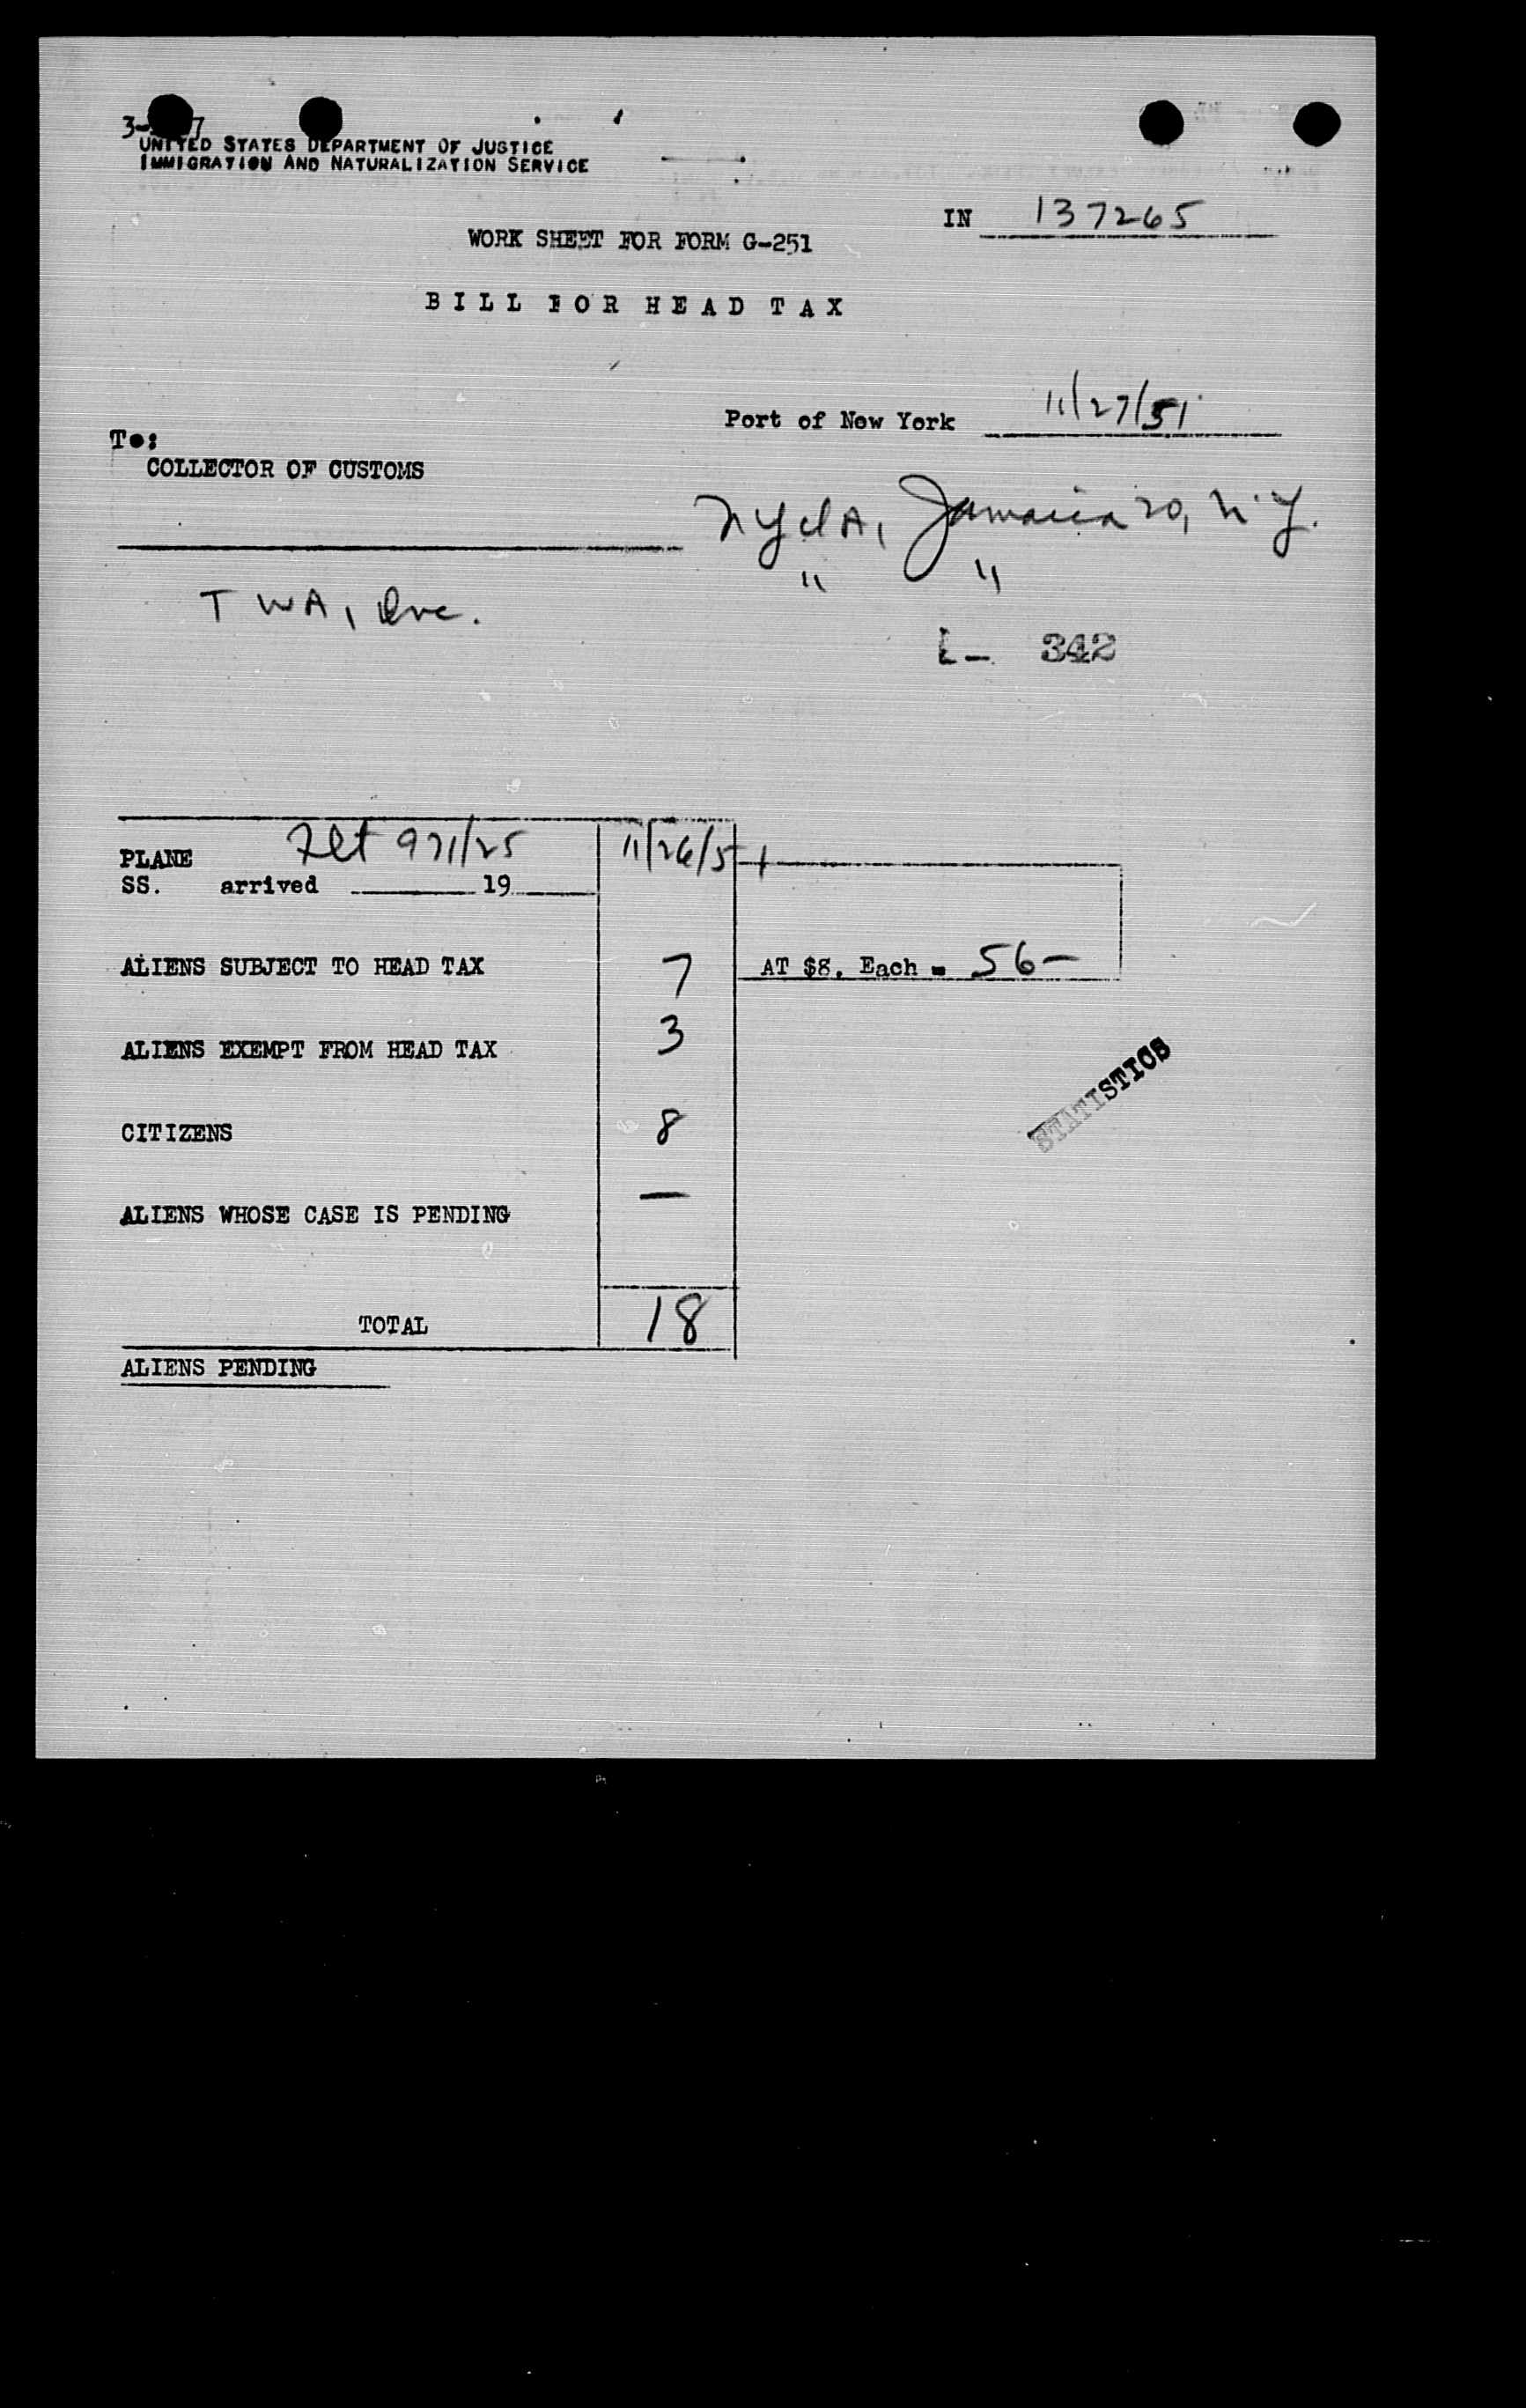 UNITED STATES DEPARTMENT OF JUSTICE
IMMIGRATION AND NATURALIZATION SERVICE
IN 137265
WORK SHEET FOR FORM G-251
BILL FOR HEAD TAX
Port of New York 11/27/51
To:
COLLECTOR OF CUSTOMS
Jamaica 20, N.Y.
" "
TWA, Inc.
342
PLANE Flt 971/25 11/26/51
SS. arrived 19
ALIENS SUBJECT TO HEAD TAX 7 AT $8. Each = 56-
ALIENS EXEMPT FROM HEAD TAX 3
CITIZENS 8
STATISTICS
ALIENS WHOSE CASE IS PENDING —
TOTAL 18
ALIENS PENDING